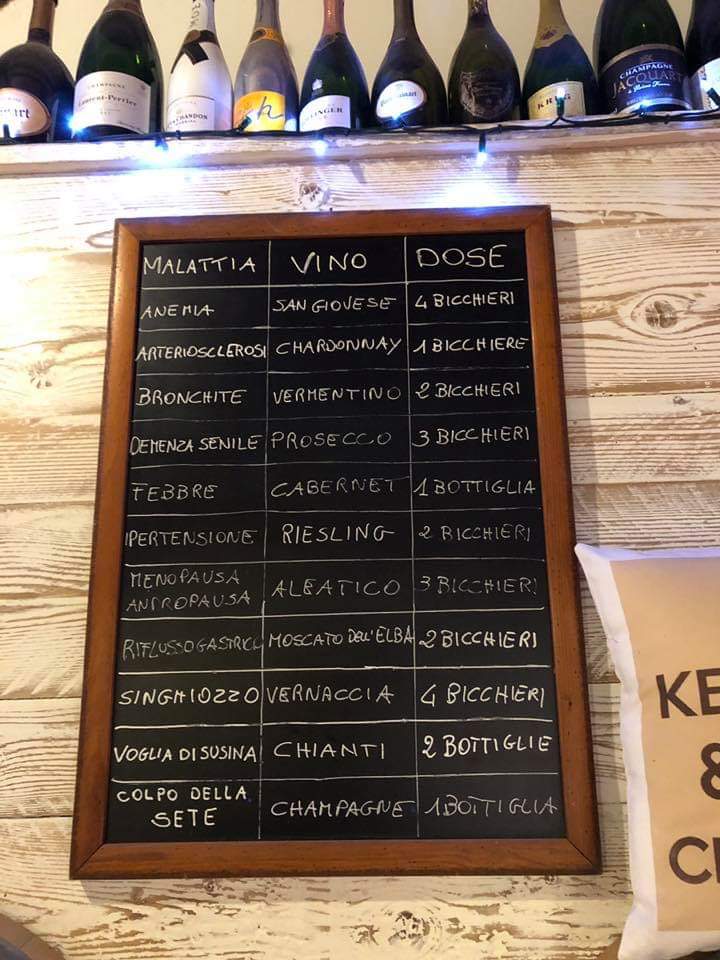 CHAMPAGNE
Laurent-Perrier
CHANDON
CHAMPAGNE
JACQUART
KRUG
MALATTIA VINO DOSE
ANEMIA SANGIOVESE 4 BICCHIERI
ARTERIOSCLEROSI CHARDONNAY 1 BICCHIERE
BRONCHITE VERMENTINO 2 BICCHIERI
DEMENZA SENILE PROSECCO 3 BICCHIERI
FEBBRE CABERNET 1 BOTTIGLIA
IPERTENSIONE RIESLING 2 BICCHIERI
MENOPAUSA
ANDROPAUSA ALEATICO 3 BICCHIERI
RIFLUSSO GASTRICO MOSCATO DELL'ELBA 2 BICCHIERI
SINGHIOZZO VERNACCIA 4 BICCHIERI
VOGLIA DI SUSINA CHIANTI 2 BOTTIGLIE
COLPO DELLA
SETE CHAMPAGNE 1 BOTTIGLIA
KE
&